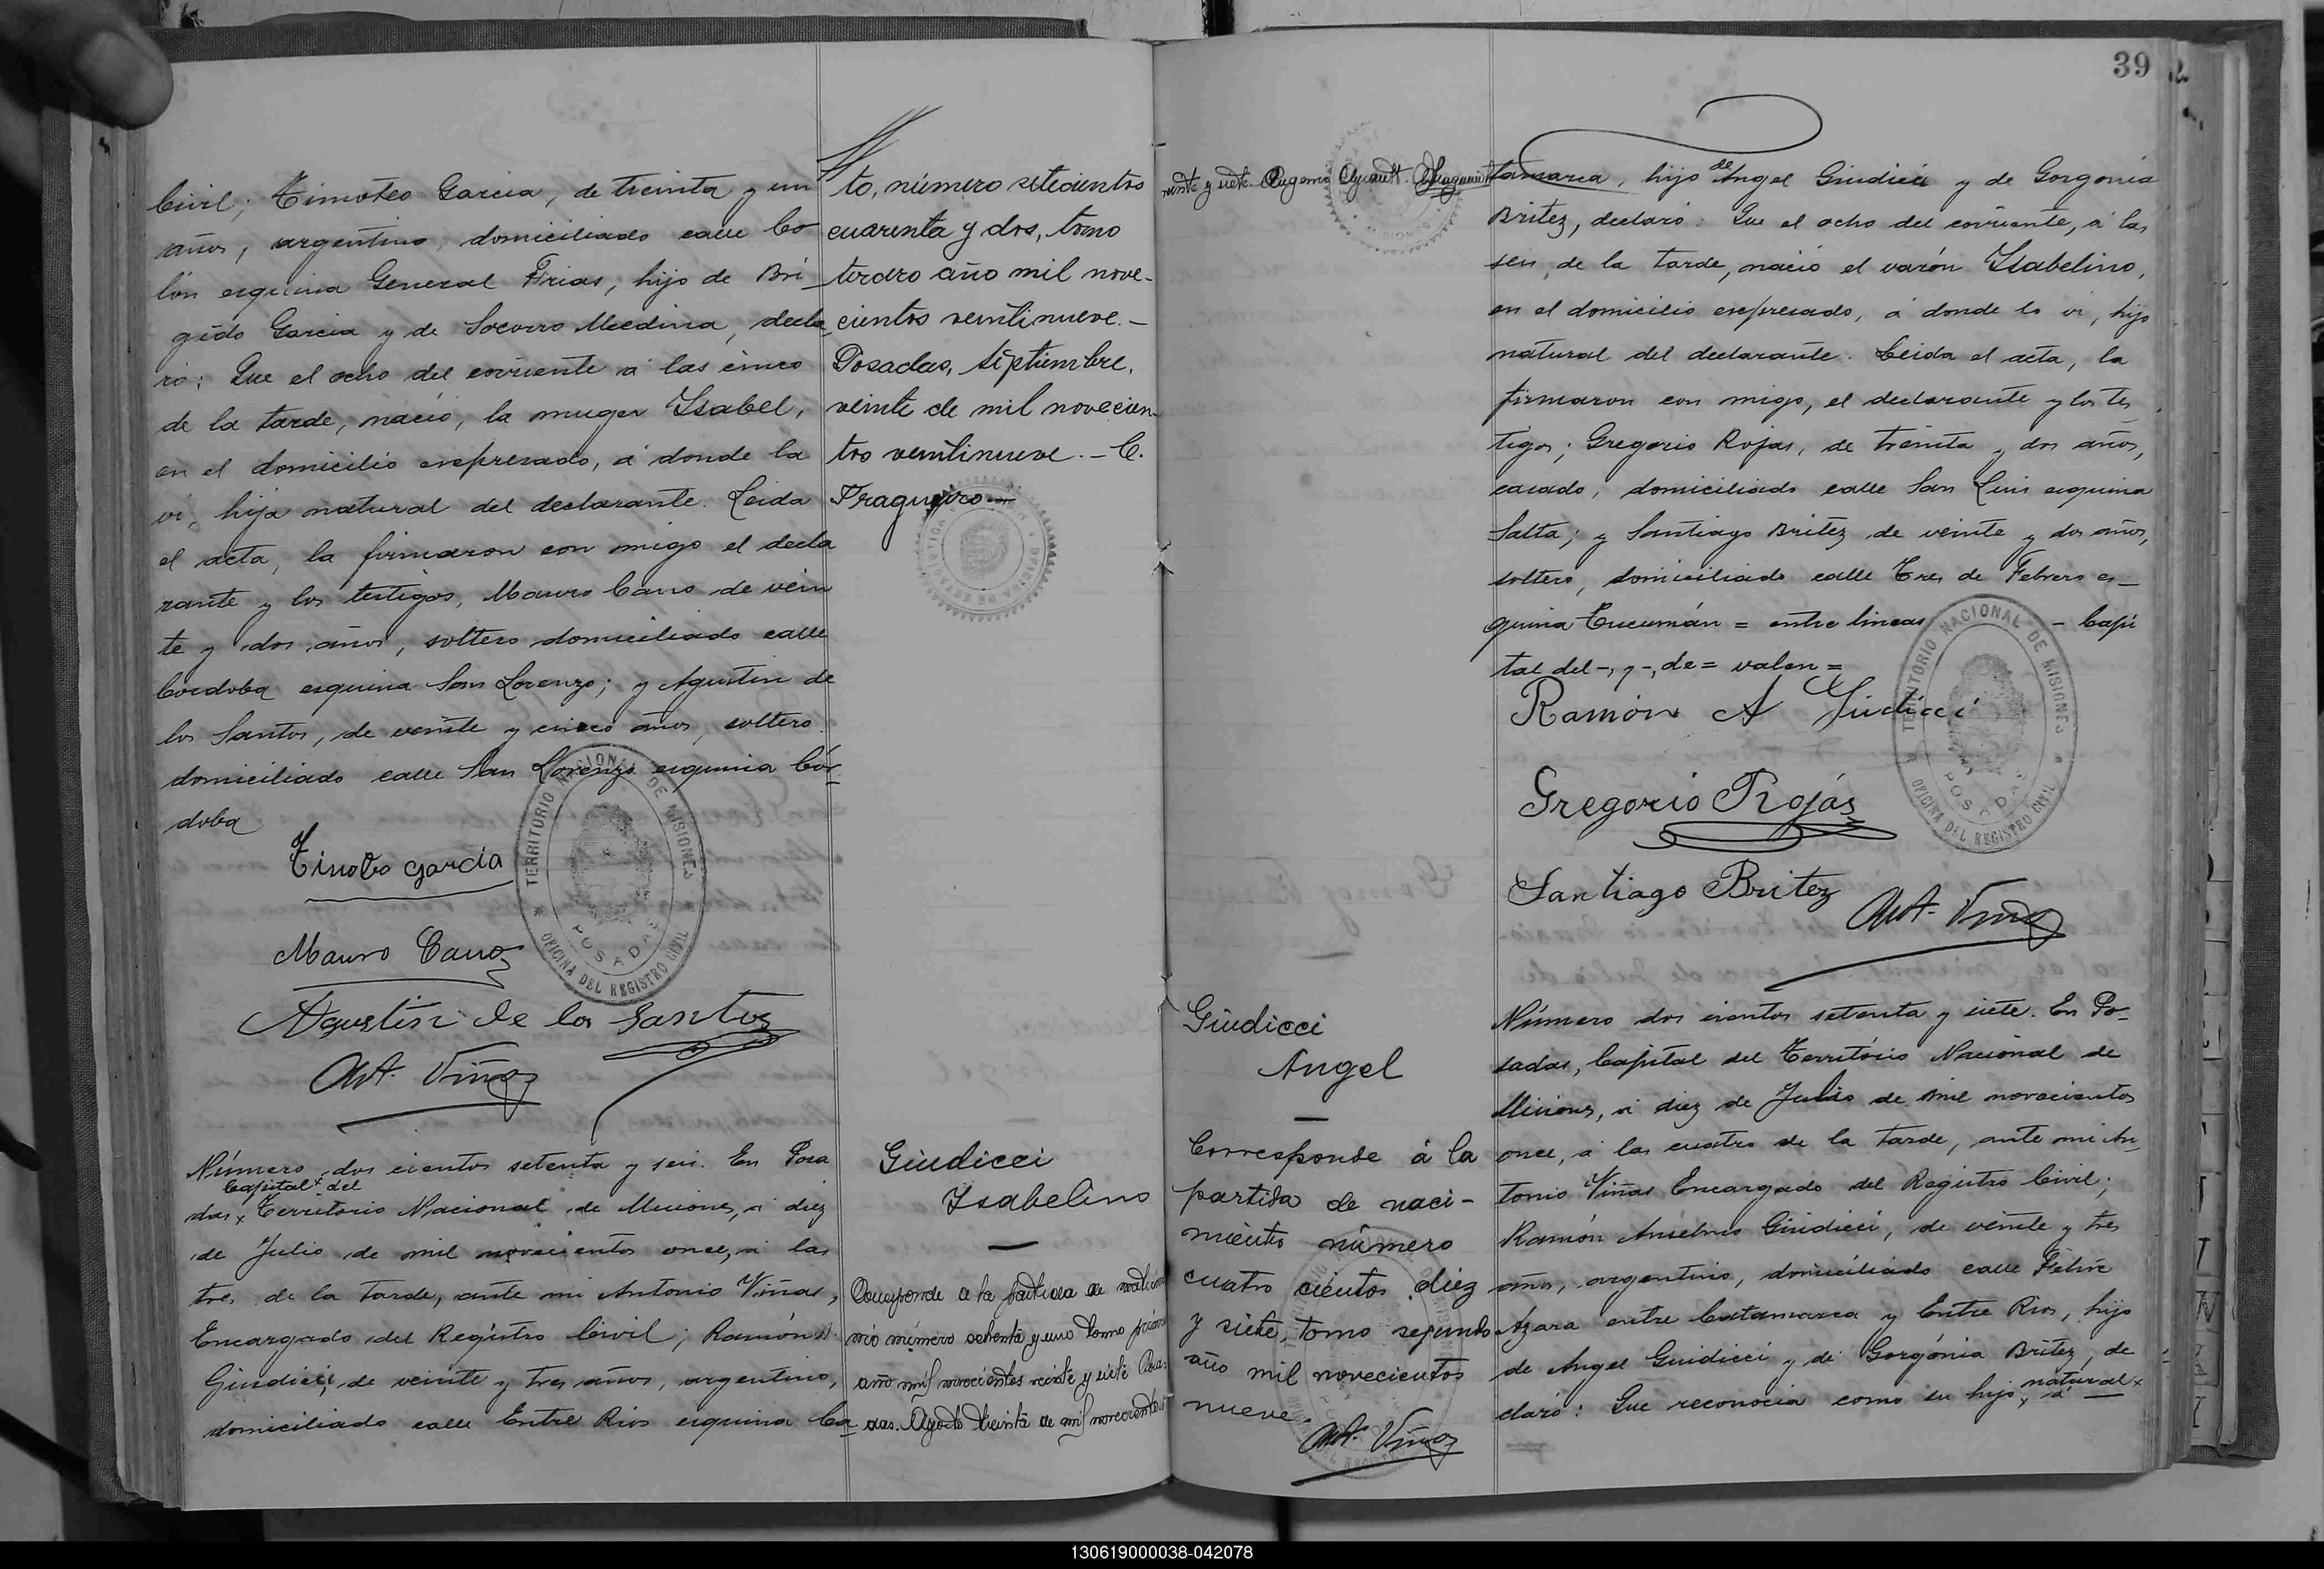 Civil; Timoteo Garcia, de treinta y un
años, argentino, domiciliado calle Co
lón esquina General Frias, hijo de Bri
gido Garcia y de Socorro Medina, decla
ró: Que el ocho del corriente á las cinco
de la tarde, nació, la muger Ysabel,
en el domicilio expresado, á donde la
ví, hija natural del declarante. Leida
el acta, la firmaron con migo el decla
rante y los testigos, Mauro Cano de vein
te y dos años, soltero domiciliado calle
Cordoba esquina San Lorenzo; y Agustin de
los Santos, de veinte y cinco años, soltero
domiciliado calle San Lorenzo esquina Cór-
doba
Timoteo Garcia
Mauro Cano
Agustín de los Santos
Ant. Viñas
TERRITORIO NACIONAL DE MISIONES
POSADAS
OFICINA DEL REGISTRO CIVIL
Número dos cientos setenta y seis. En Posa
Capital del
das, Territorio Nacional de Misiones, á diez
de Julio de mil novecientos once, á las
tres de la tarde, ante mi Antonio Viñas,
Encargado del Registro Civil; Ramón A.
Giudicci, de veinte y tres años, argentino,
domiciliado calle Entre Rios esquina Ca-
to, número setecientos
cuarenta y dos, tomo
tercero año mil nove-
cientos veintinueve.-
Posadas, septiembre,
veinte de mil novecien-
tos veintinueve.- C.
Fragueiro
Giudicci
Ysabelino
Corresponde a la partida de matrimo
nio número ochenta y uno tomo primero
año mil novecientos veinte y siete Posa-
das. Agosto treinta de mil novecientos
39
veinte y siete. Eugenio
Giudicci
Angel
Corresponde á la
partida de naci-
miento número
cuatro cientos diez
y siete, tomo segundo
año mil novecientos
nueve.
Ant. Viñas
tamarca, hijo de Angel Giudicci y de Gorgonia
Britez, declaró: Que el ocho del corriente, á las
seis de la tarde, nació el varón Ysabelino,
en el domicilio expresado, á donde lo ví, hijo
natural del declarante. Leida el acta, la
firmaron con migo, el declarante y los tes
tigos; Gregorio Rojas, de treinta y dos años,
casado, domiciliado calle San Luis esquina
Salta; y Santiago Britez de veinte y dos años,
soltero, domiciliado calle Tres de Febrero es-
quina Tucumán = entre lineas - Capi
tal del -, y -, de = valen =
Ramón A Giudicci
Gregorio Rojas
Santiago Britez
Ant. Viñas
TERRITORIO NACIONAL DE MISIONES
POSADAS
OFICINA DEL REGISTRO CIVIL
Número dos cientos setenta y siete. En Po-
sadas, Capital del Território Nacional de
Misiones, á diez de Julio de mil novecientos
once, á las cuatro de la tarde, ante mi An-
tonio Viñas Encargado del Registro Civil;
Ramón Anselmo Giudicci, de veinte y tres
años, argentino, domiciliado calle Felix
Azara entre Catamarca y Entre Rios, hijo
de Angel Giudicci y de Gorgónia Britez, de
claró: Que reconocia como su hijo, natural á
130619000038-042078